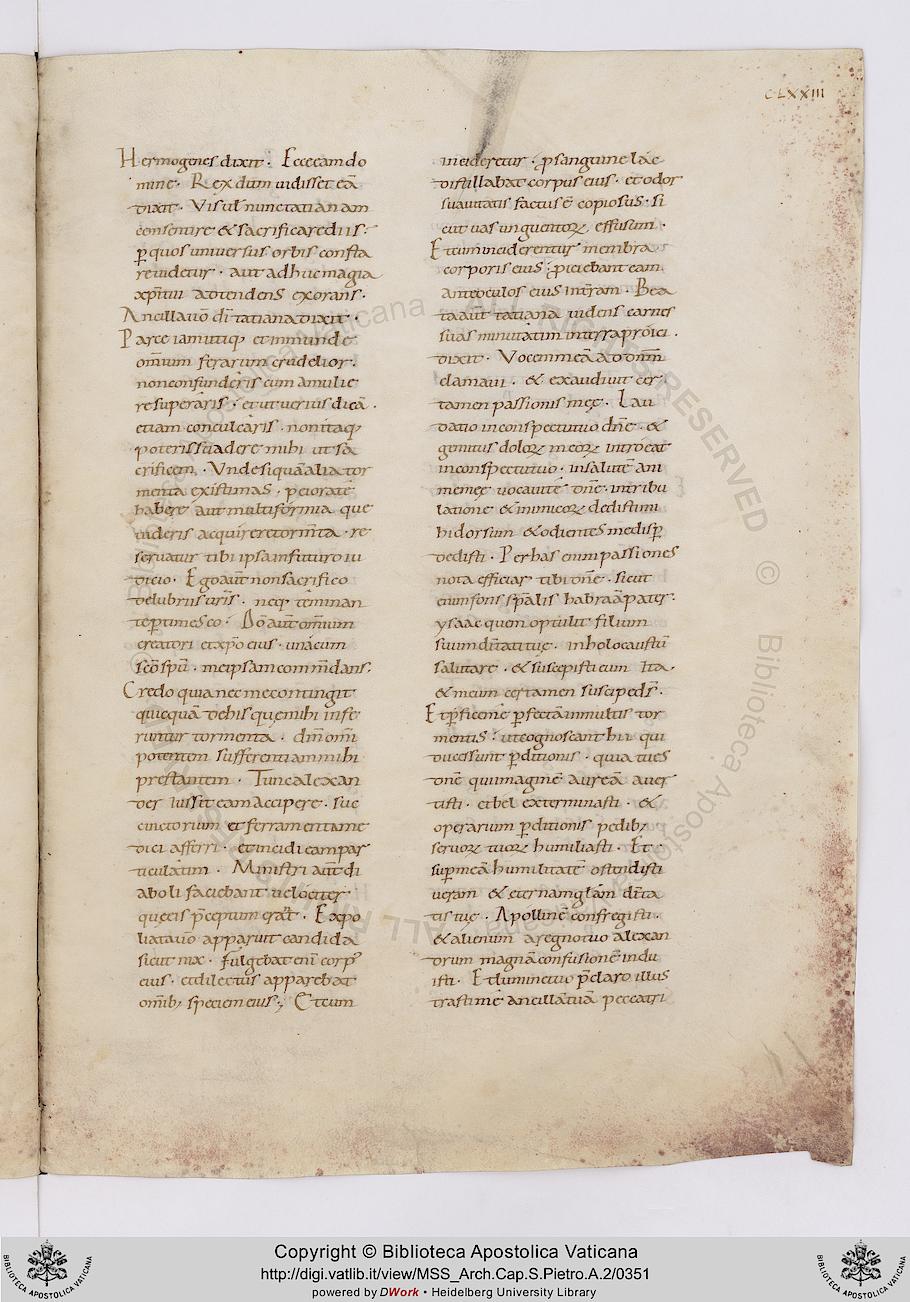 CLXXIII
Hermogenes dixit · Ecce eam do
mine · Rex dum uidisset eā
dixit · Vis uł nunc tatianam
consentire & sacrificare diis ·
ꝑ quos uniuersus orbis consta
re uidetur · aut adhuc magia
xp̄m tui adtendens exorans ·
Ancilla uō dī tatiana dixit ·
Parce iam utiq; et inmunde
omīum ferarum crudelior ·
non confunderis cum a mulie
re superaris · et ut uerius dicā ·
etiam conculcaris · non itaq;
poteris suadere mihi ut sa
crificem · Vnde siquā alia tor
menta existimas · peiora tē
habere aut multiformia que
uideris acquirere torm̄ta · re
seruatur tibi ipsa in futuro iu
dicio · Ego aūt non sacrifico
delubriis uris · neq; te minan
te ꝑtimesco · Do aūt omīum
creatori et xp̄o eius · una cum
sc̄o sp̄u · me ipsam com̄m̄dans ·
Credo quia nec me contingit
quicquā de his que mihi infe
runtur tormenta · dm̄ om̄i
potentem sufferentiam mihi
prestantem · Tunc alexan
der iussit eam accipere · suc
cinctorium et ferramenta me
dici afferri · et incidi eam par
ticulatim · Ministri aūt di
aboli faciebant uelociter
que eis p̄ceptum erat · Expo
liata uō apparuit candida
sicut nix · fulgebat eni corp;
eius · et dilectus apparebat
omīb; speciem eius · Et cum
incideretur · ꝑ sanguine lac
distillabat corpus eius · et odor
suauitatis factus ē copiosus · si
cut uas unguentoꝝ effusum ·
Et cum inciderentur membra
corporis eius · piciebant eam
ante oculos eius in trām · Bea
ta aut tatiana uidens carnes
suas minutatim in terra proici ·
dixit · Vocem meā ad dnm̄
clamaui · & exaudiuit cer
tamen passionis meę · Lau
datio in conspectu tuo dn̄e · &
gemitus doloꝝ meoꝝ introeat
in conspectu tuo · in salutē ani
me meę uocaui te dn̄e · in tribu
latione & inimicoꝝ dedisti mi
hi dorsum & odientes me disꝑ
dedisti · Per has enim passiones
nota efficiar tibi dn̄e · sicut
cum fons sp̄alis habraā pater ·
ysaac quem optulit filium
suum dītati tuę · in holocaustū
salutare · & suscepisti eum Ita ·
& meum certamen suscipe dš ·
Et ꝑfice me ꝑfectā in multis tor
mentis · ut cognoscant hii qui
duces sunt ꝑditionis · quia tu es
dn̄e qui imaginē aureā auer
tisti · et bel exterminasti · &
operarium ꝑditionis pedib;
seruoꝝ tuoꝝ humiliasti · Et
suꝑ meā humilitatē ostendisti
ueram & eternam glām dīta
tis tuę · Apollinē confregisti ·
& alienum a regno tuo alexan
drum magnā confusionē indu
isti · Et lumine tuo p̄claro illus
trasti me ancillā tuā peccatri
Copyright © Biblioteca Apostolica Vaticana
http://digi.vatlib.it/view/MSS_Arch.Cap.S.Pietro.A.2/0351
powered by DWork • Heidelberg University Library